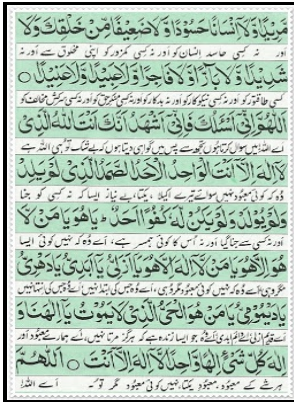 مَرِيدًا وَّلَا اِنْسَانًا حَسُودًا وَّلَا ضَعِيفًا مِّنْ خَلْقِكَ وَلَا
اور نہ کسی حاسد انسان کو اور نہ کسی کمزور کو اپنی مخلوق سے اور نہ
شَدِيدًا وَّلَا بَآرًّا وَّلَا فَاجِرًا وَّلَا عَنِيدًا
کسی طاقتور کو اور نہ کسی نیکوکار کو اور نہ بدکار کو اور نہ کسی
اَللّٰهُمَّ اِنِّيْ اَسْئَلُكَ فَاِنِّيْ اَشْهَدُ اَنَّكَ اَنْتَ اللّٰهُ الَّذِيْ
اے اللہ! میں سوال کرتا ہوں تجھ سے پس میں گواہی دیتا ہوں کہ بے شک تو ہی اللہ ہے
لَآ اِلٰهَ اِلَّآ اَنْتَ الْوَاحِدُ الْاَحَدُ الصَّمَدُ الَّذِيْ لَمْ يَلِدْ
وہ کہ کوئی معبود نہیں سوائے تیرے اکیلا، یکتا، بے نیاز ایسا کہ نہ کسی کو جنا
وَلَمْ يُوْلَدْ وَلَمْ يَكُنْ لَّهٗ كُفُوًا اَحَدٌ يَا هُوَ يَا مَنْ لَّا
اور نہ کسی سے جنا گیا اور نہ اس کا کوئی ہمسر ہے، اے وہ کہ نہیں کوئی ایسا
هُوَ اِلَّا هُوَ يَا مَنْ لَّآ اِلٰهَ اِلَّا هُوَ يَا اَزَلِيُّ يَا اَبَدِيُّ يَا دَهْرِيُّ
مگر وہی اے وہ کہ نہیں کوئی معبود مگر وہی،
يَا دَيْمُوْمِيُّ يَا مَنْ هُوَ الْحَيُّ الَّذِيْ لَا يَمُوْتُ يَآ اِلٰهَنَا وَ
جو ایسا زندہ ہے کہ ہرگز مرتا نہیں، اے ہمارے معبود اور
اِلٰهَ كُلِّ شَيْءٍ اِلٰهًا وَّاحِدًا لَّآ اِلٰهَ اِلَّآ اَنْتَ ۝ اَللّٰهُمَّ
ہر شے کے معبود، معبود یکتا، نہیں کوئی معبود مگر تو۔ اے اللہ!